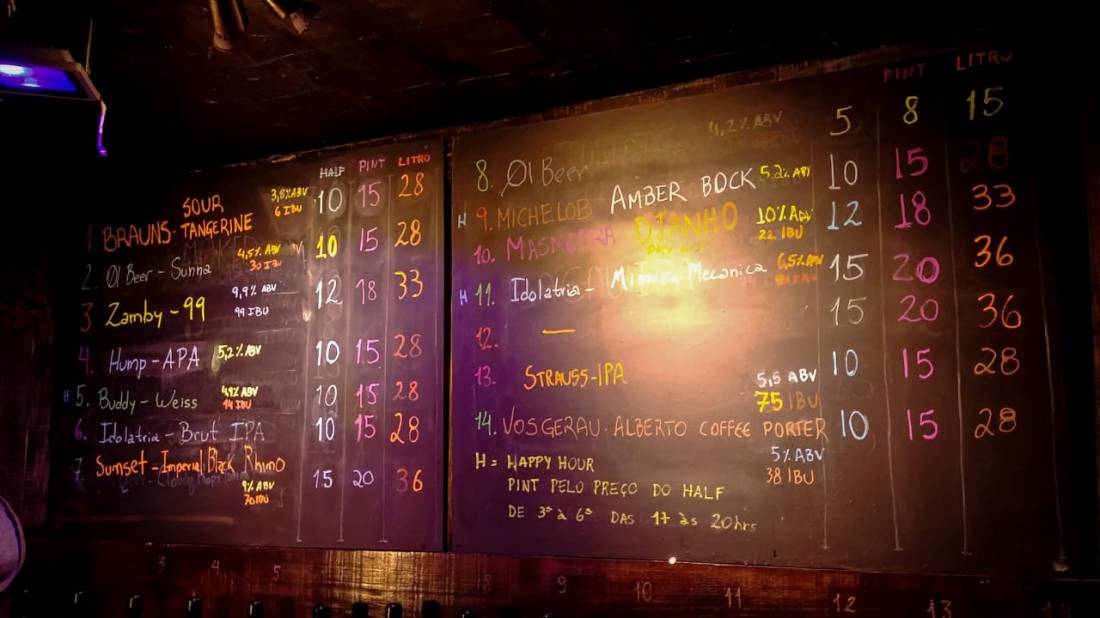 HALF PINT LITRO
SOUR 3,8%ABV
1. BRAUNS - TANGERINE 6 IBU 10 15 28
2. Øl Beer - Sunna 4,5% ABV 30 IBU 10 15 28
3 Zamby - 99 9,9% ABV 99 IBU 12 18 33
4. Hump - APA 5,2% ABV 10 15 28
H 5. Buddy - Weiss 4,9% ABV 14 IBU 10 15 28
6. Idolatria - Brut IPA 10 15 28
7 Sunset - Imperial Black Rhino 15 20 36
9% ABV
70 IBU
PINT LITRO
8. Øl Beer 4,2% ABV 5 8 15
H 9. MICHELOB AMBER BOCK 5,2% ABV 10 15 28
10. DIANHO 10% ABV 22 IBU 12 18 33
H 11. Idolatria - Mecanica 6,5% ABV 15 20 36
12. — 15 20 36
13. STRAUSS - IPA 10 15 28
5,5 ABV
75 IBU
14. VOSGERAU - ALBERTO COFFEE PORTER 10 15 28
5% ABV
38 IBU
H = HAPPY HOUR
PINT PELO PREÇO DO HALF
DE 3ª à 6ª DAS 17 às 20hrs
3 4 5 8 9 10 11 12 13